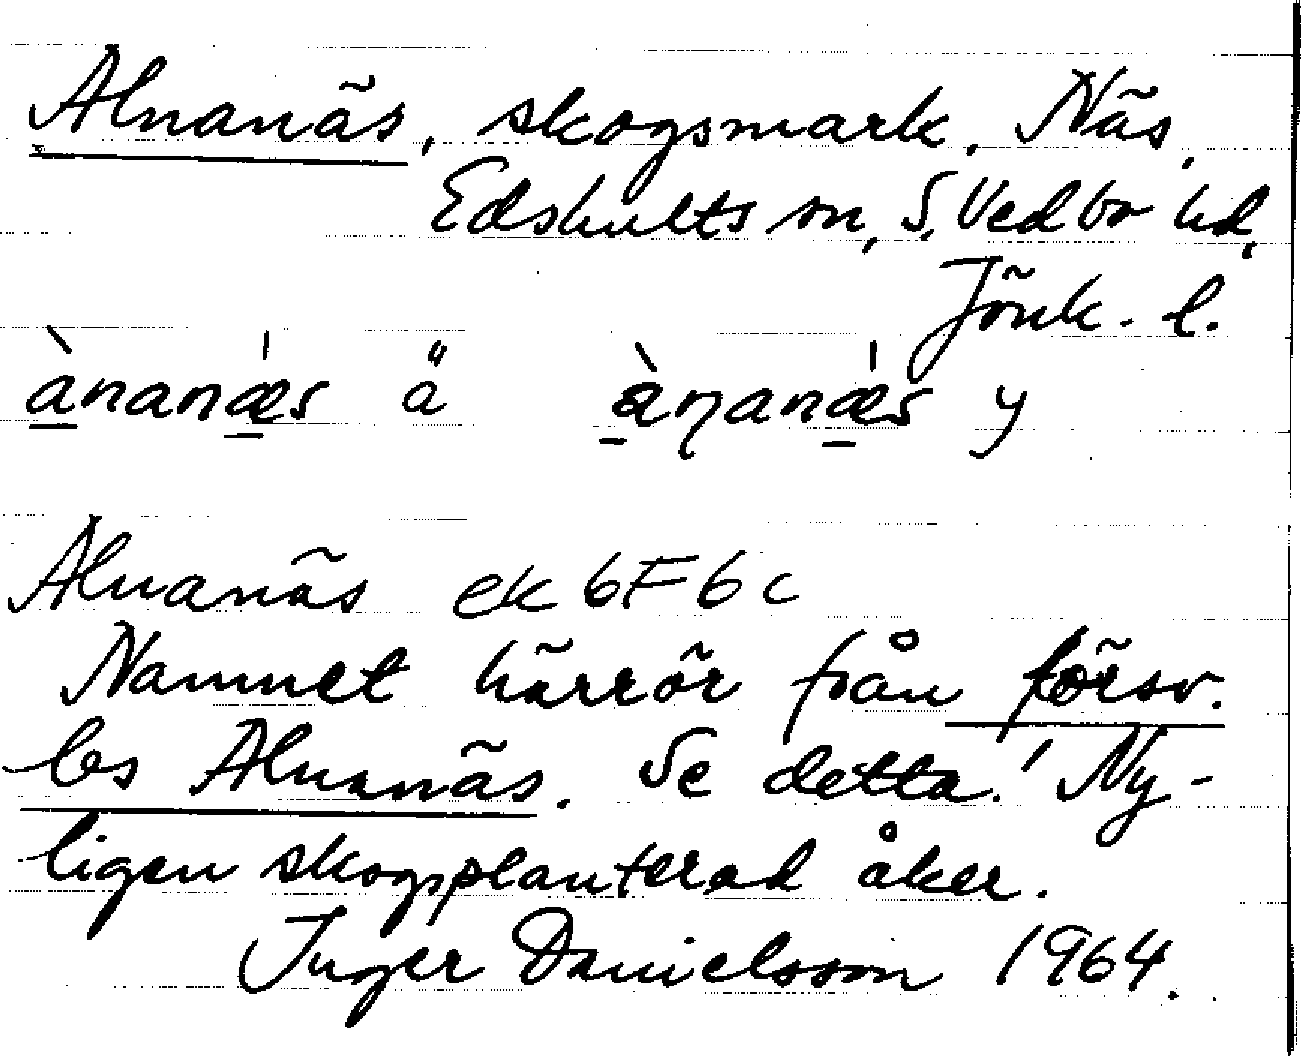 Alnanäs, skogsmark. Näs,
Edshults sn, S. Vedbo hd,
Jönk. l.
ànanǽs ä àṇanǽs y
Alnanäs ek 6F6c
Namnet härrör från försv.
lgs Alnanäs. Se detta! Ny-
ligen skogsplanterad åker.
Inger Danielsson 1964.